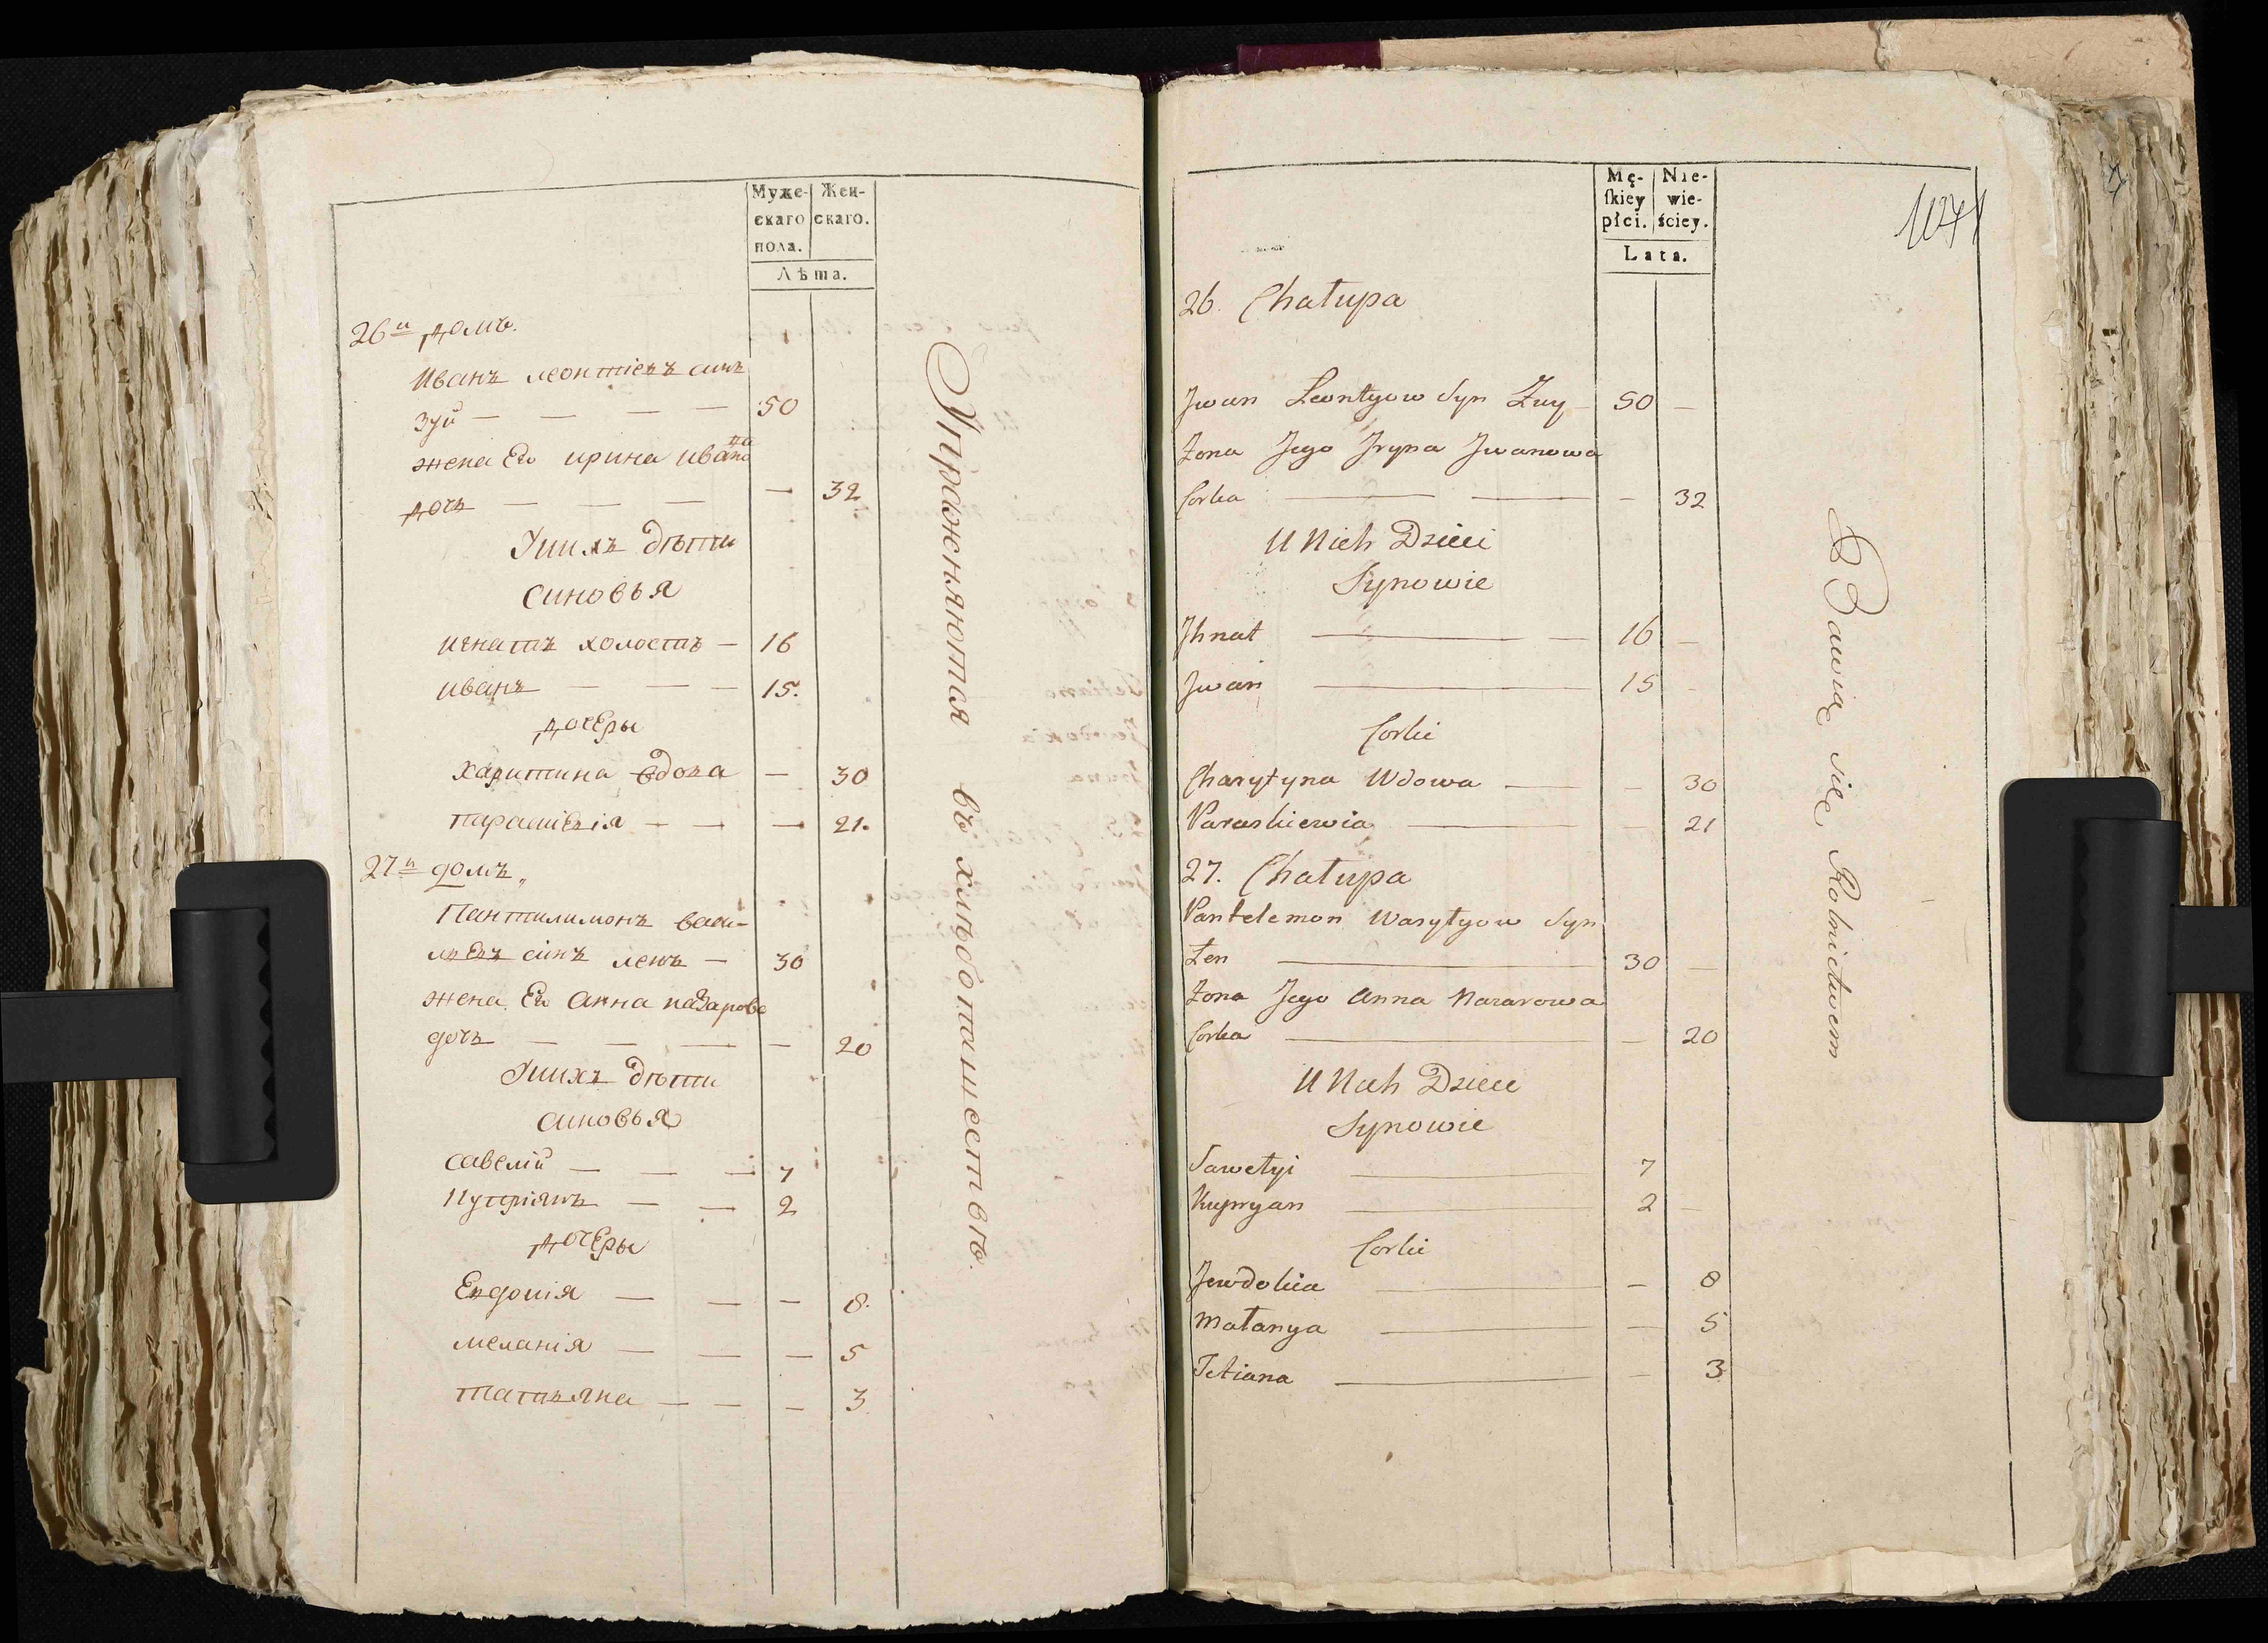 Муже-
скаго
пола.
Жен-
скаго.
Лѣта.
26й домъ.
Иванъ леонтіевъ синъ
Зуй — — — — 50
жена Его ирина ивано
ва
дочъ — — — — 32
У нихъ дѣти
синовья
игнатъ холостъ — 16
иванъ — — — 15.
дочеры
харитина вдова — 30
парасківія — — — 21.
27й домъ
Пантилимонъ васи-
лѣевъ синъ ленъ — 30
жена Его Анна назарова
дочъ — — — — 20
У нихъ дѣти
синовья
савелій — — — 7
Купріянъ — — 2
дочеры
Евдокія — — — 8.
меланія — — — 5
татьяна — — — 3
Упражняются въ хлѣбопашествѣ.
Mę-
skiey
płci.
Nie-
wie-
ściey.
Lata.
26. Chałupa
Jwan Lewntyow Syn Zuy 50 —
Żona Jego Jryna Jwanowa
Corka — — — 32
U Nich Dzieci
Synowie
Jhnat — — 16 —
Jwan — 15 -
Corki
Charytyna Wdowa — — 30
Paraskiewia — — 21
27. Chałupa
Pantelemon Wasylyow Syn
Len — 30 —
Żona Jego Anna Nazarowa
Corka — — 20
U Nich Dzieci
Synowie
Sawełyi — 7
Kupryan — 2 —
Corki
Jewdokia — — 8
Małanya — — 5
Tetiana — — 3
Bawią się Rolnictwem